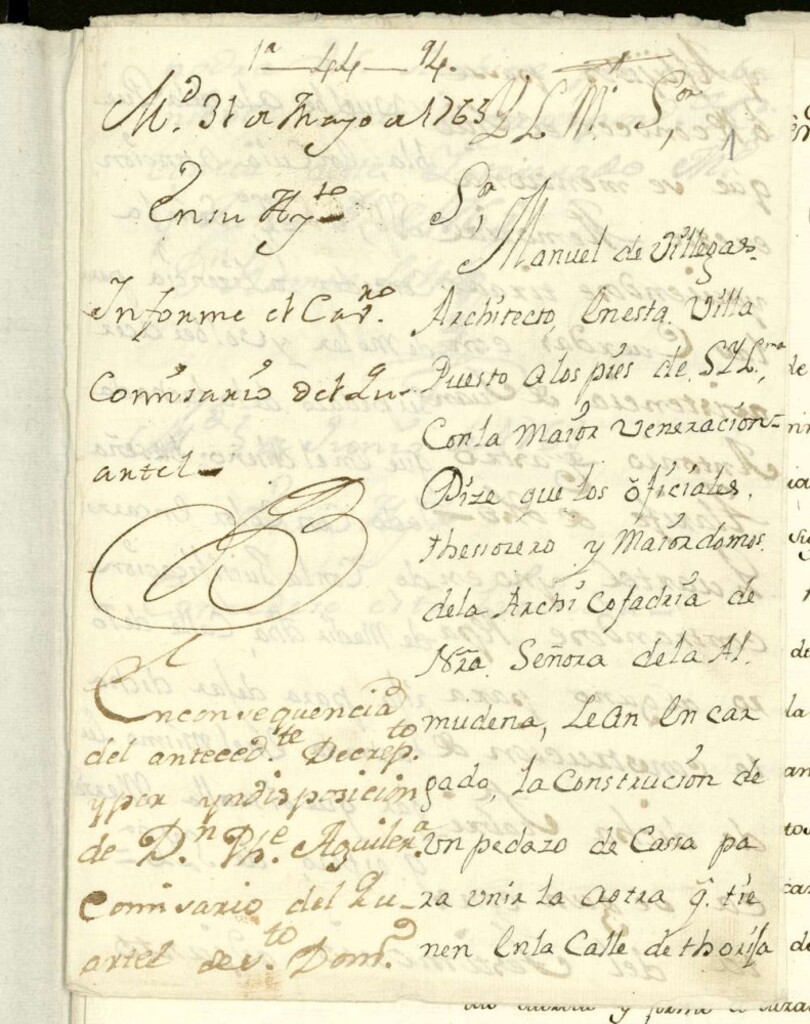 1ª — 44 — 94.
M.d 31 de Mayo de 1763
En su Ay.to
Informe el Cav.ro
Comisario del Qu-
artel
En consequencia
del anteced.te Decrep.to
y por yndisposicion
de D.n Ph.e Aguilera
Comisario del Qu-
artel de s.to Dom.o
Y L Mº S.or
1
S.or
Manuel de Villegas.
Architecto, en esta Villa
Puesto a los pies de S Y L.ma,
Con la maior veneracion=
Dize que los oficiales,
thessorero y Maiordomos
dela Archi Cofadria de
Nra. Señora dela Al
mudena, le an en car
gado, la Construcion de
un pedazo de Cassa pa
ra unir la a otra q. tie
nen en la Calle de thorija